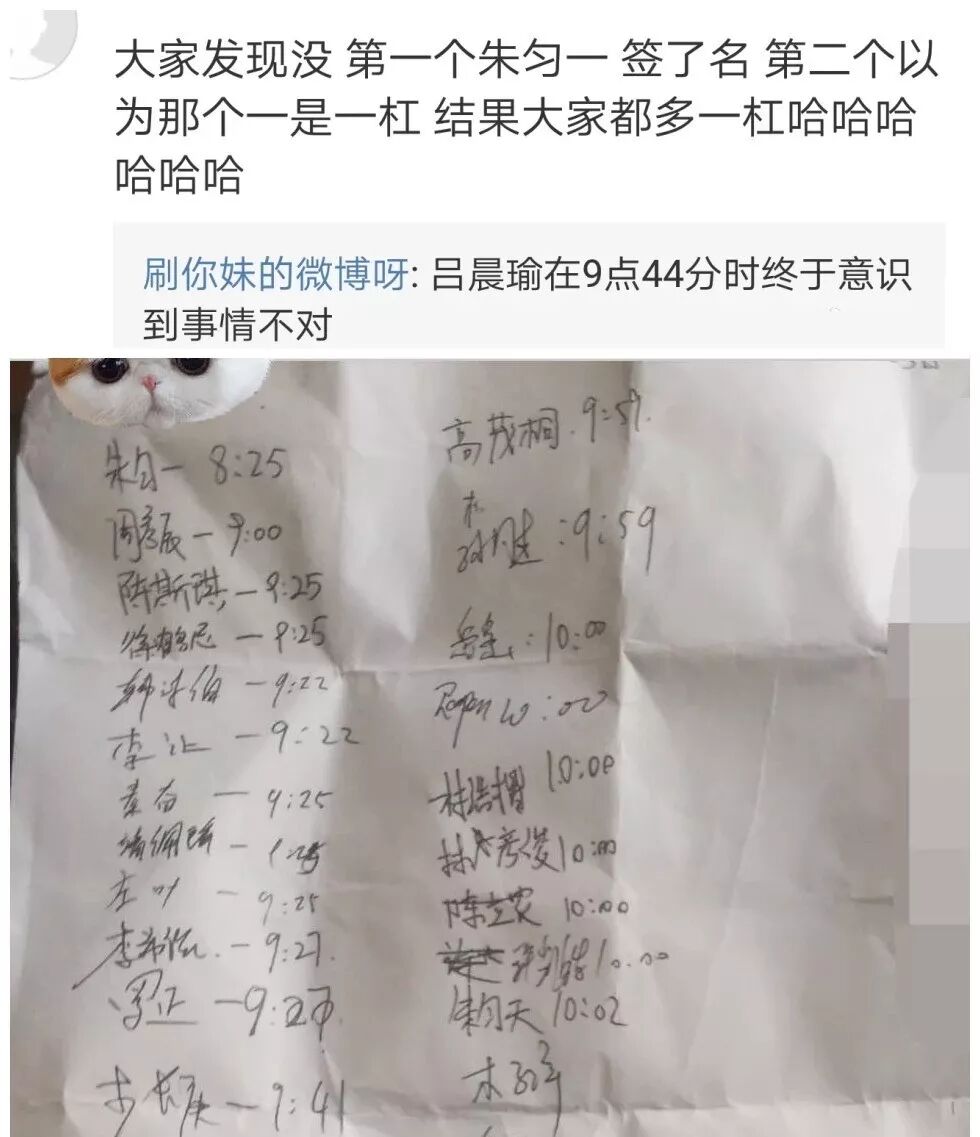 大家发现没 第一个朱匀一 签了名 第二个以
为那个一是一杠 结果大家都多一杠哈哈哈
哈哈哈
刷你妹的微博呀: 吕晨瑜在9点44分时终于意识
到事情不对
朱匀一 8:25
周彦辰 - 9:00
陈斯琪 - 9:25
徐鹤尼 - 9:25
韩沐伯 - 9:22
李让 - 9:22
秦奋 - 9:25
靖佩瑶 -
左叶 - 9:25
李希侃 - 9:27
罗正 - 9:27
- 9:41
高茂桐 9:57
:9:59
岳岳 : 10:00
10:00
林超泽 10:00
林彦俊 10:00
陈立农 10:00
10:00
朱匀天 10:02